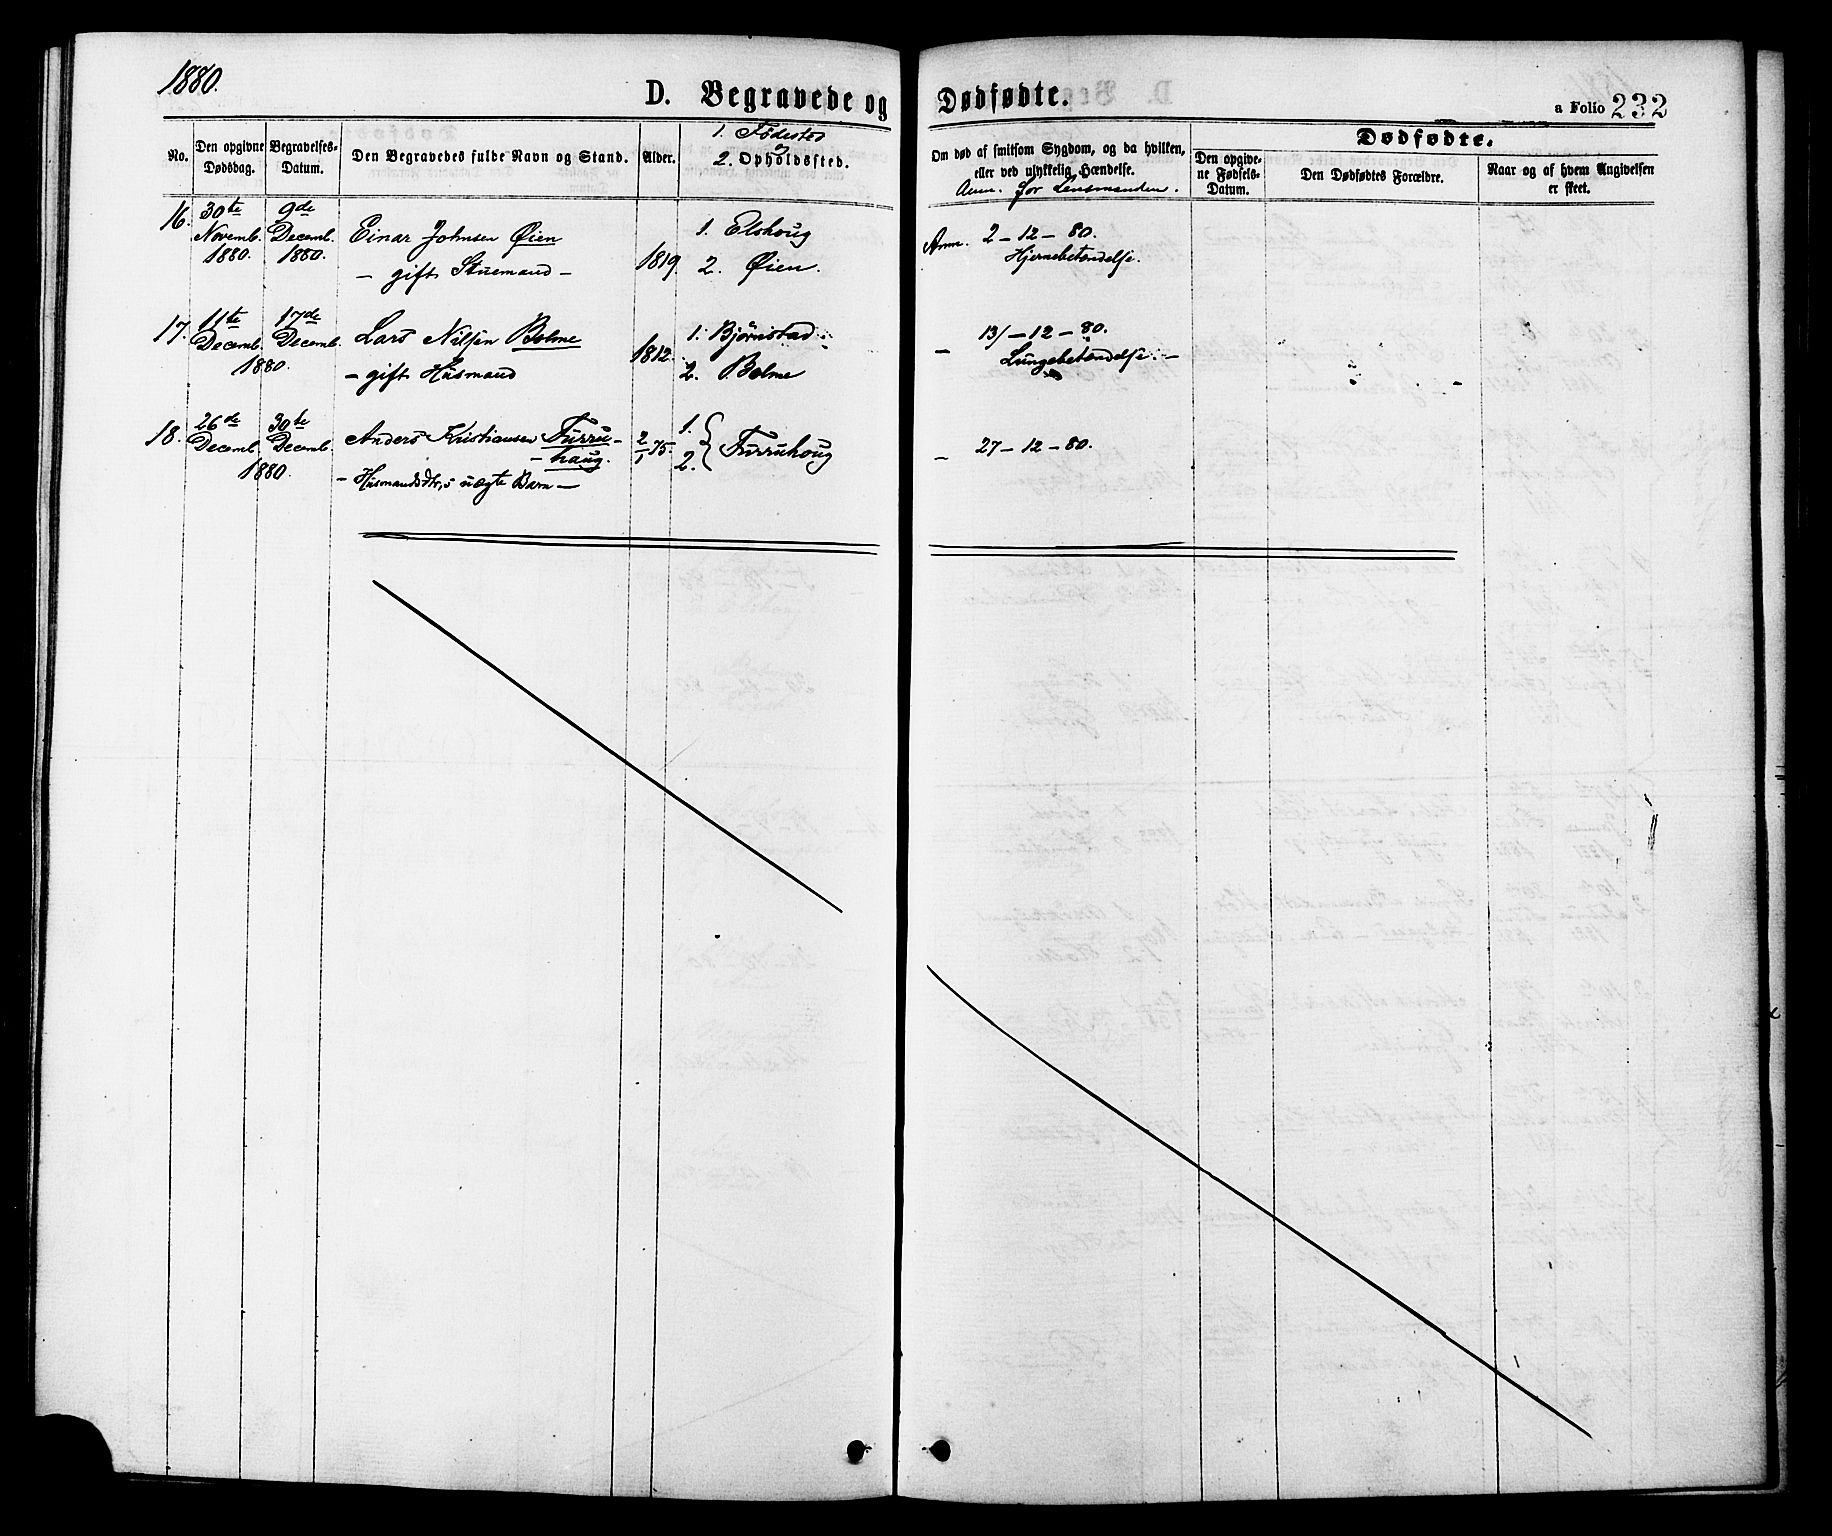 1880.
D. Begravede og Dødfødte.
a Folio 232
No.
Den opgivne Dødsdag.
Begravelses-Datum.
Den Begravedes fulde Navn og Stand.
Alder.
1. Fødested
og
2. Opholdssted.
Om død af smitsom Sygdom, og da hvilken,
eller ved ulykkelig Hændelse.
Anm. for Lensmanden.
Dødfødte.
Den opgive-
ne Fødsels-
Datum.
Den Dødfødtes Forældre.
Naar og af hvem Angivelsen
er skeet.
16. 30te Novemb. 1880. 9de Decemb. 1880. Einar Johnsen Øien
- gift Stuemand - 1819
1. Elshoug
2. Øien.
Anm. 2 - 12 - 80.
Hjernebetændelse.
17. 11te Decemb. 17de Decemb. 1880. Lars Nilsen Bolme
- gift Husmand 1812.
1. Bjørnstad
2. Bolme
- 13/ - 12 - 80.
Lungebetændelse. -
18. 26de Decemb. 30te Decemb 1880. Anders Kristiansen Furru-
- haug.
- Husmandsdtr,s uægte Barn - 2/1 75.
1.
2. } Furruhoug
- 27 - 12 - 80.